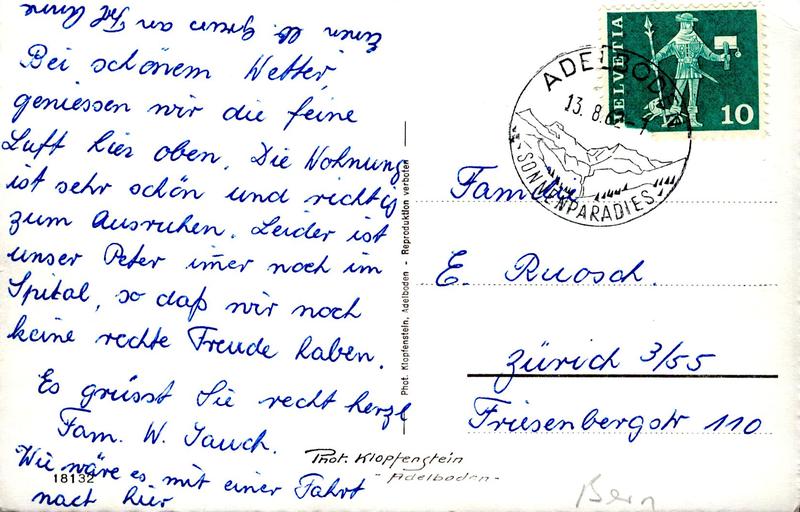 Einen lb. Gruss an Frl. Anna
Bei schönem Wetter,
geniessen wir die feine
Luft hier oben. Die Wohnung
ist sehr schön und richtig
zum Ausruhen. Leider ist
unser Peter im̄er noch im
Spital, so daß wir noch
keine rechte Freude haben.
Es grüsst Sie recht herzl
Fam. W. Jauch.
Wie wäre es mit einer Fahrt
nach hier
18132
Phot. Klopfenstein, Adelboden - Reproduktion verboten
Phot. Klopfenstein
- Adelboden -
HELVETIA
10
ADELBODEN
13. 8. 62 - 1
SONNENPARADIES
Familie
E. Ruosch.
Zürich 3/55
Friesenbergstr 110
Bern